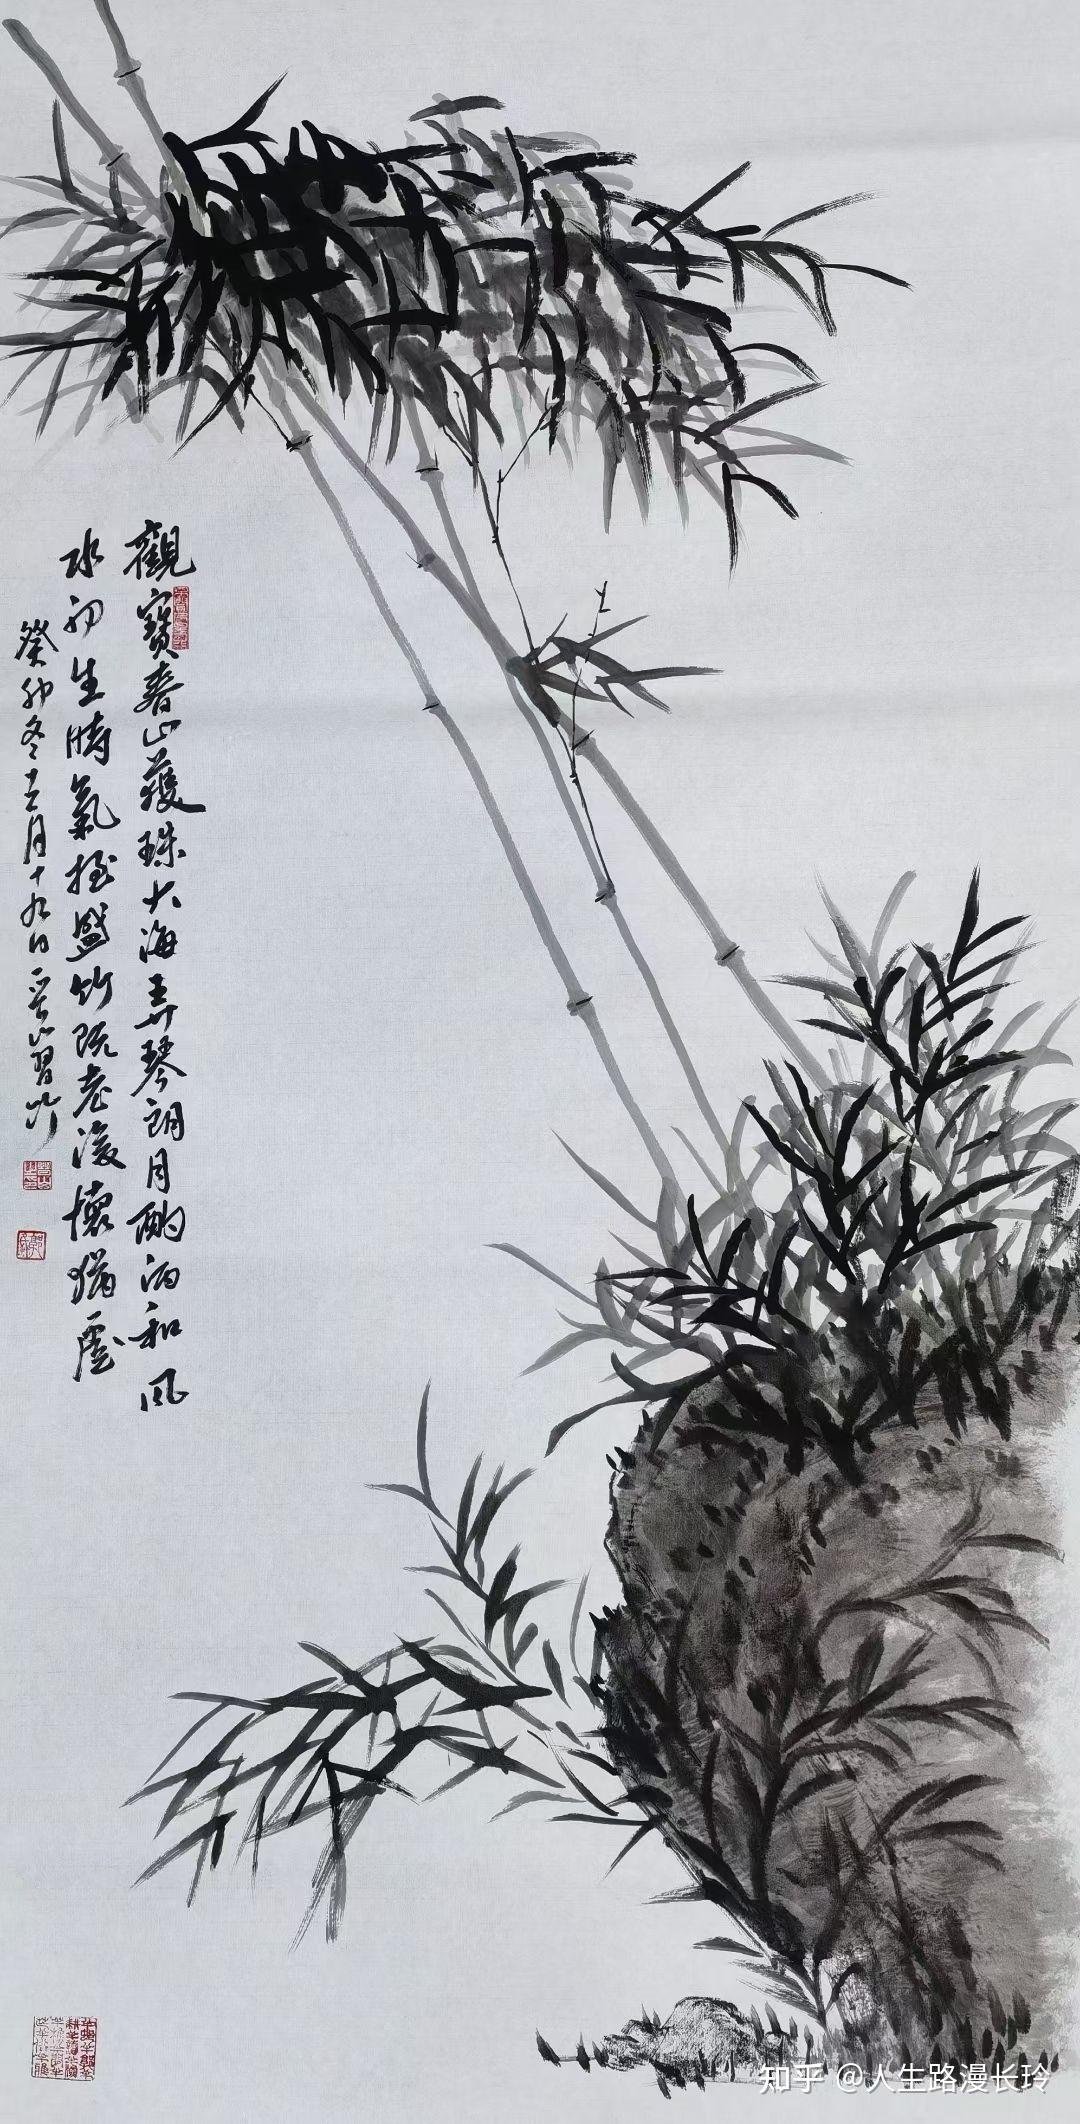 觀寶春山獲珠大海弄琴朗月酌酒和風
水初生時氣極盛竹既老後懷猶虛
癸卯冬十二月十九日 山習竹
知乎 @人生路漫长玲